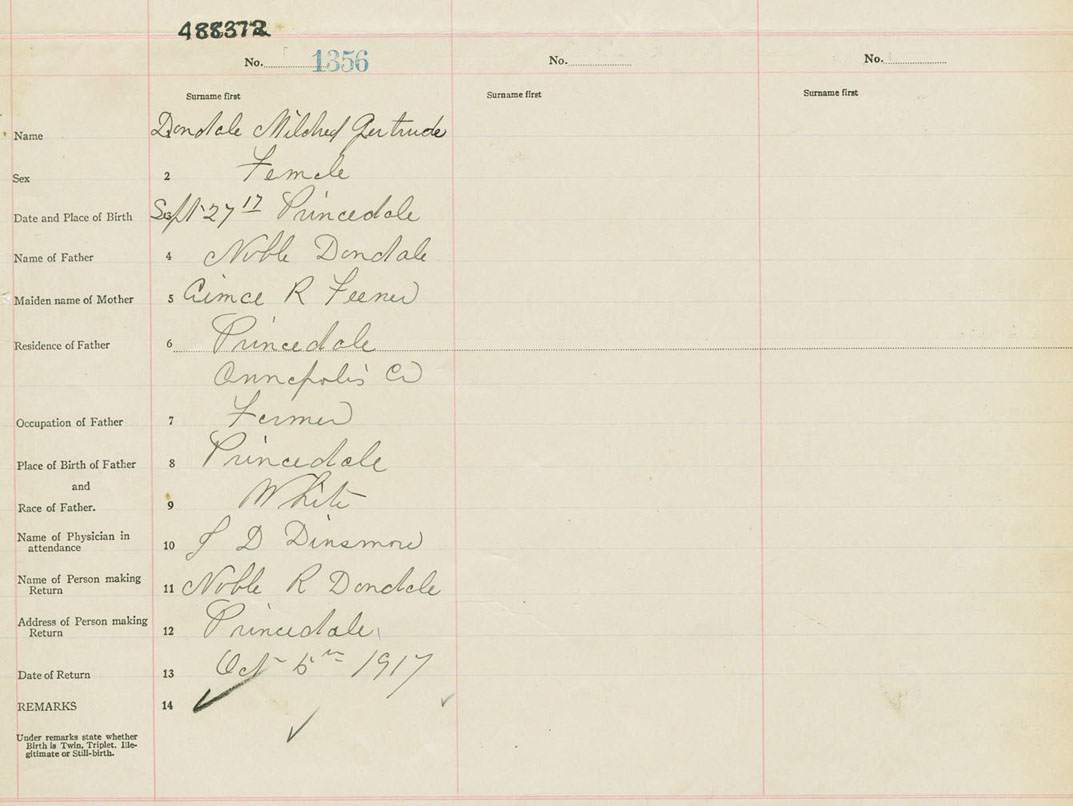 488372
No. 1356 No. No.
Surname first Surname first Surname first
Name 1 Dondale Mildred Gertrude
Sex 2 Female
Date and Place of Birth 3 Sept 27 17 Princedale
Name of Father 4 Noble Dondale
Maiden name of Mother 5 R Feener
Residence of Father 6 Princedale
Annapolis Co
Occupation of Father 7 Farmer
Place of Birth of Father 8 Princedale
and
Race of Father. 9 White
Name of Physician in
attendance 10 D Dinsmore
Name of Person making
Return 11 Noble R Dondale
Address of Person making
Return 12 Princedale
Date of Return 13 Oct 5th 1917
REMARKS 14
Under remarks state whether
Birth is Twin, Triplet, Ille-
gitimate or Still-birth.